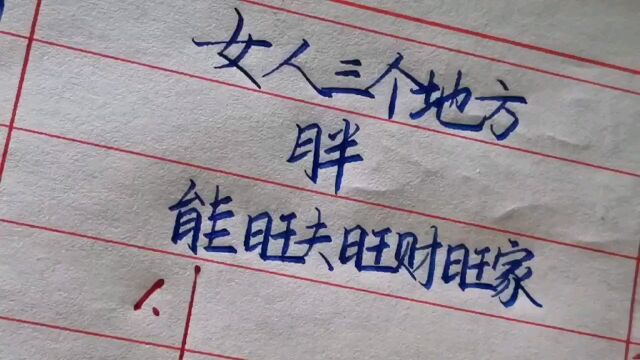 女人三个地方
胖
能旺夫旺财旺家